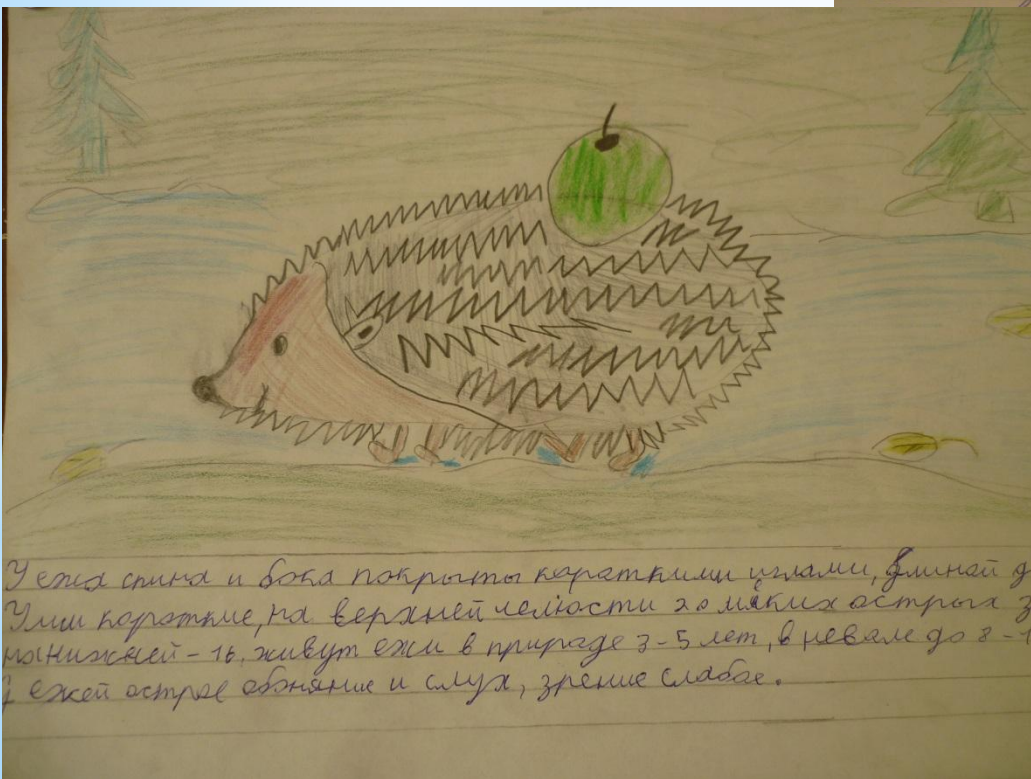 У ежа спина и бока покрыты кораткими иглами, длиной д
Уши короткие, на верхней челюсти 20 мяких острых з
на нижней - 16. живут ежи в прираде 3-5 лет, в невале до 8 - 1
У ежей острое обняние и слух, зрение слабое.